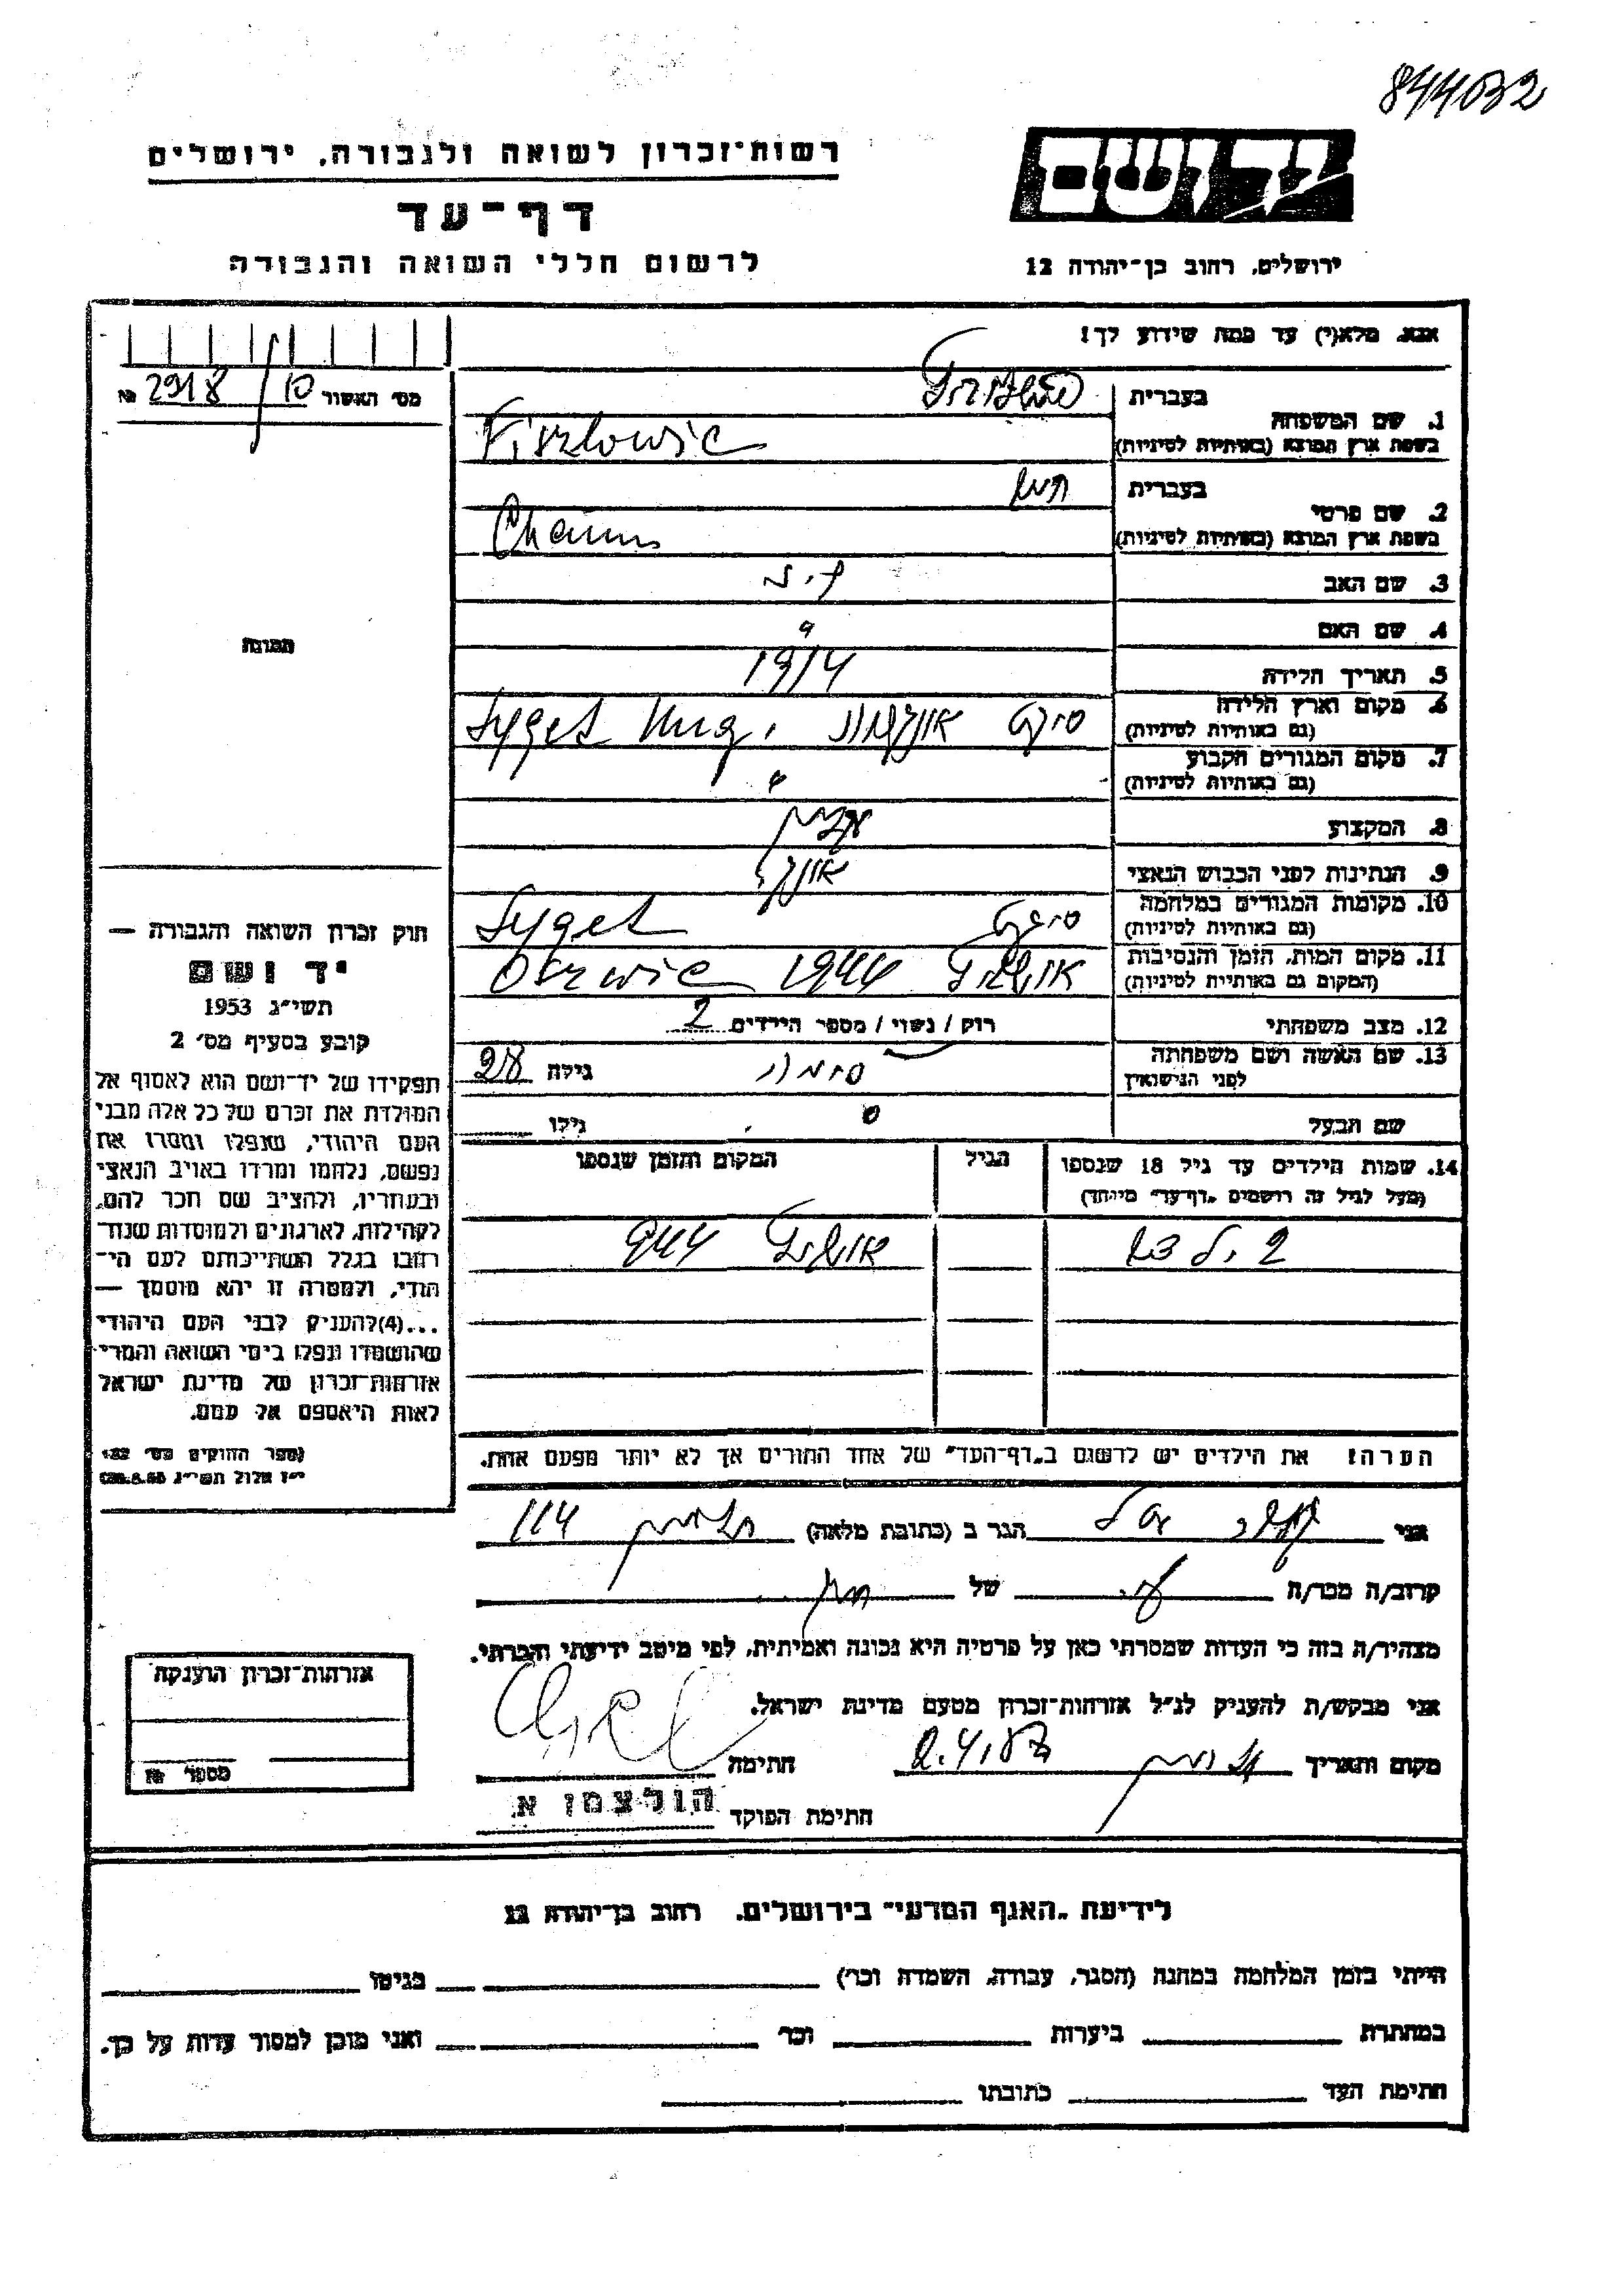 844032
רשות-זכרון לשואה ולגבורה, ירושלים
יד ושם
דף-עד
לרשום חללי השואה והגבורה
ירושלים, רחוב בן-יהודה 12
אנא, מלא(י) עד כמה שידוע לך!
מס' האשור 10/2918 №
בעברית
1. שם המשפחה
בשפת ארץ המוצא (באותיות לטיניות) Fiszlowic
בעברית חיים
2. שם פרטי
בשפת ארץ המוצא (באותיות לטיניות) Chaim
3. שם האב
4. שם האם
5. תאריך הלידה 1914
6. מקום וארץ הלידה סיגט Syget Hung.
(גם באותיות לטיניות)
7. מקום המגורים הקבוע
(גם באותיות לטיניות)
8. המקצוע
9. הנתינות לפני הכבוש הנאצי
10. מקומות המגורים במלחמה סיגט Syget
(גם באותיות לטיניות)
11. מקום המות, הזמן והנסיבות 1944 Oszwic
(המקום גם באותיות לטיניות)
12. מצב משפחתי רוק / נשוי / מספר הילדים 2
13. שם האשה ושם משפחתה גילה 28
לפני הנישואין
שם הבעל גילו
תמונה
14. שמות הילדים עד גיל 18 שנספו הגיל המקום והזמן שנספו
(מעל לגיל זה רושמים „דף-עד" מיוחד)
2 ילדים 944
הערה: את הילדים יש לרשום ב„דף-העד" של אחד ההורים אך לא יותר מפעם אחת.
חוק זכרון השואה והגבורה —
יד ושם
תשי"ג 1953
קובע בסעיף מס' 2
תפקידו של יד-ושם הוא לאסוף אל
המולדת את זכרם של כל אלה מבני
העם היהודי, שנפלו ומסרו את
נפשם, נלחמו ומרדו באויב הנאצי
ובעוזריו, ולהציב שם וזכר להם,
לקהילות, לארגונים ולמוסדות שנח-
רבו בגלל השתייכותם לעם הי-
הודי, ולמטרה זו יהא מוסמך —
...(4)להעניק לבני העם היהודי
שהושמדו ונפלו בימי השואה והמרי
אזרחות-זכרון של מדינת ישראל
לאות היאספם אל עמם.
(ספר החוקים מס' 132
י"ז אלול תשי"ג 28.8.53)
אני הגר ב (כתובת מלאה) 114
קרוב/ה מכר/ה של חיים
מצהיר/ה בזה כי העדות שמסרתי כאן על פרטיה היא נכונה ואמיתית, לפי מיטב ידיעתי והכרתי.
אני מבקש/ת להעניק לנ"ל אזרחות-זכרון מטעם מדינת ישראל.
מקום ותאריך חתימה
חתימת הפוקד הולצמן א.
אזרחות-זכרון הוענקה
מספר №
לידיעת „האגף המדעי" בירושלים, רחוב בן-יהודה 12
הייתי בזמן המלחמה במחנה (הסגר, עבודה, השמדה וכו') בגיטו
במחתרת ביערות וכו' ואני מוכן למסור עדות על כך.
חתימת העד כתובתו